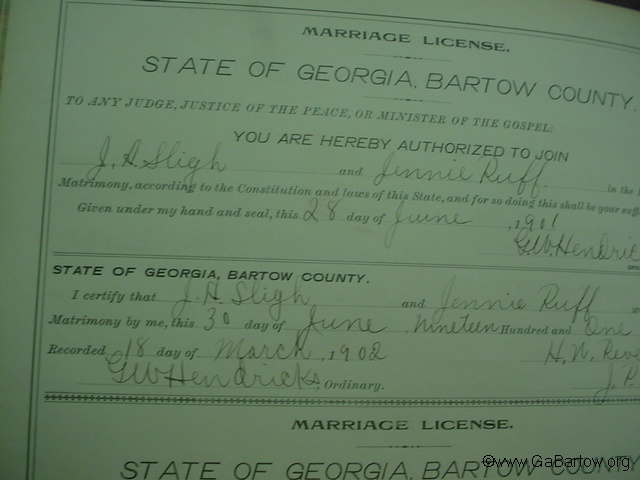 MARRIAGE LICENSE.
STATE OF GEORGIA, BARTOW COUNTY.
TO ANY JUDGE, JUSTICE OF THE PEACE, OR MINISTER OF THE GOSPEL:
YOU ARE HEREBY AUTHORIZED TO JOIN
J. A. Sligh and Jennie Ruff in the
Matrimony, according to the Constitution and laws of this State, and for so doing this shall be your
Given under my hand and seal, this 28 day of June, 1901
G.W. Hendric
STATE OF GEORGIA, BARTOW COUNTY.
I certify that J. A. Sligh and Jennie Ruff
Matrimony by me, this 30 day of June, nineteen Hundred and One
Recorded 18 day of March, 1902 H. N.
GW Hendricks, Ordinary. J. P.
MARRIAGE LICENSE.
STATE OF GEORGIA, BARTOW COUNTY
©www.GaBartow.org